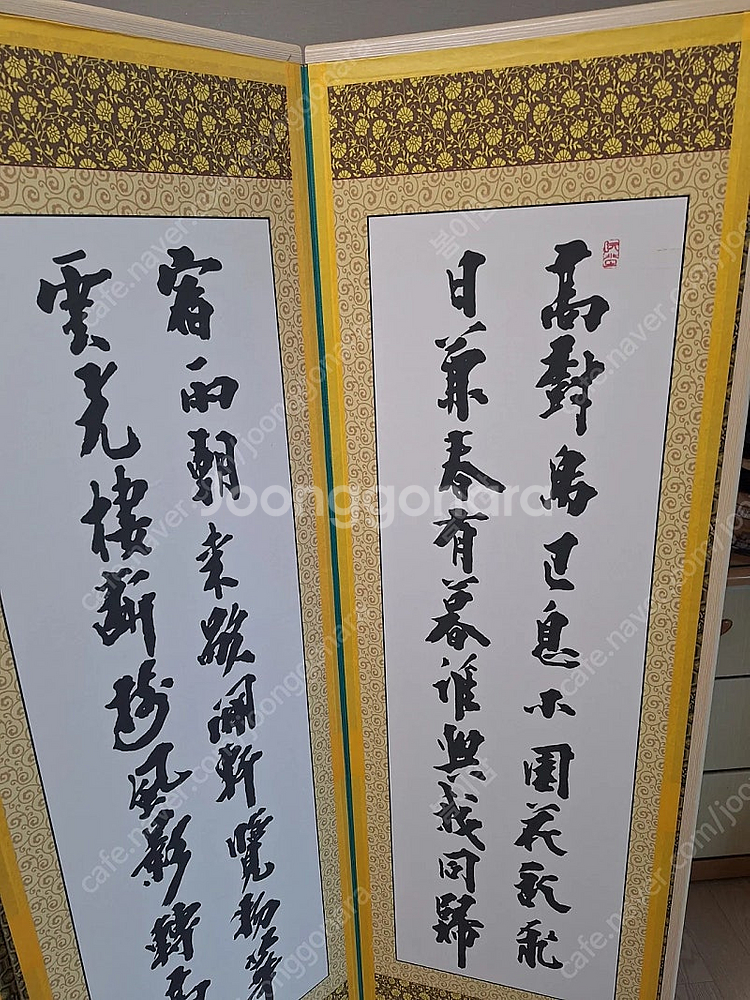 高樹鳥已息小園花亂飛
日兼春有暮誰與我同歸
宿雨朝來歇開軒覽物華
雲光棲斷樹風影轉
Joonggonara
cafe.naver.com/joonggonara